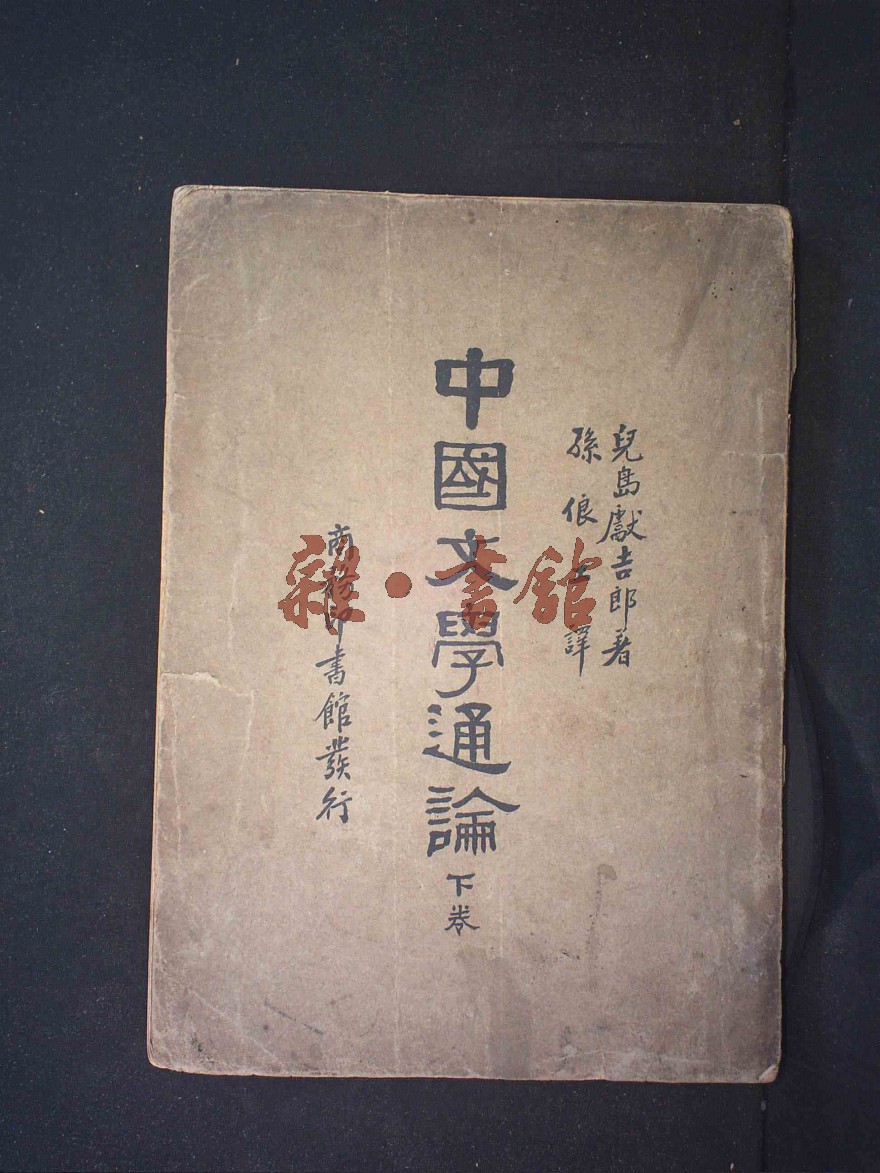 兒島獻吉郎著
孫俍工譯
中國文學通論
下卷
商務印書館發行
雜·書館